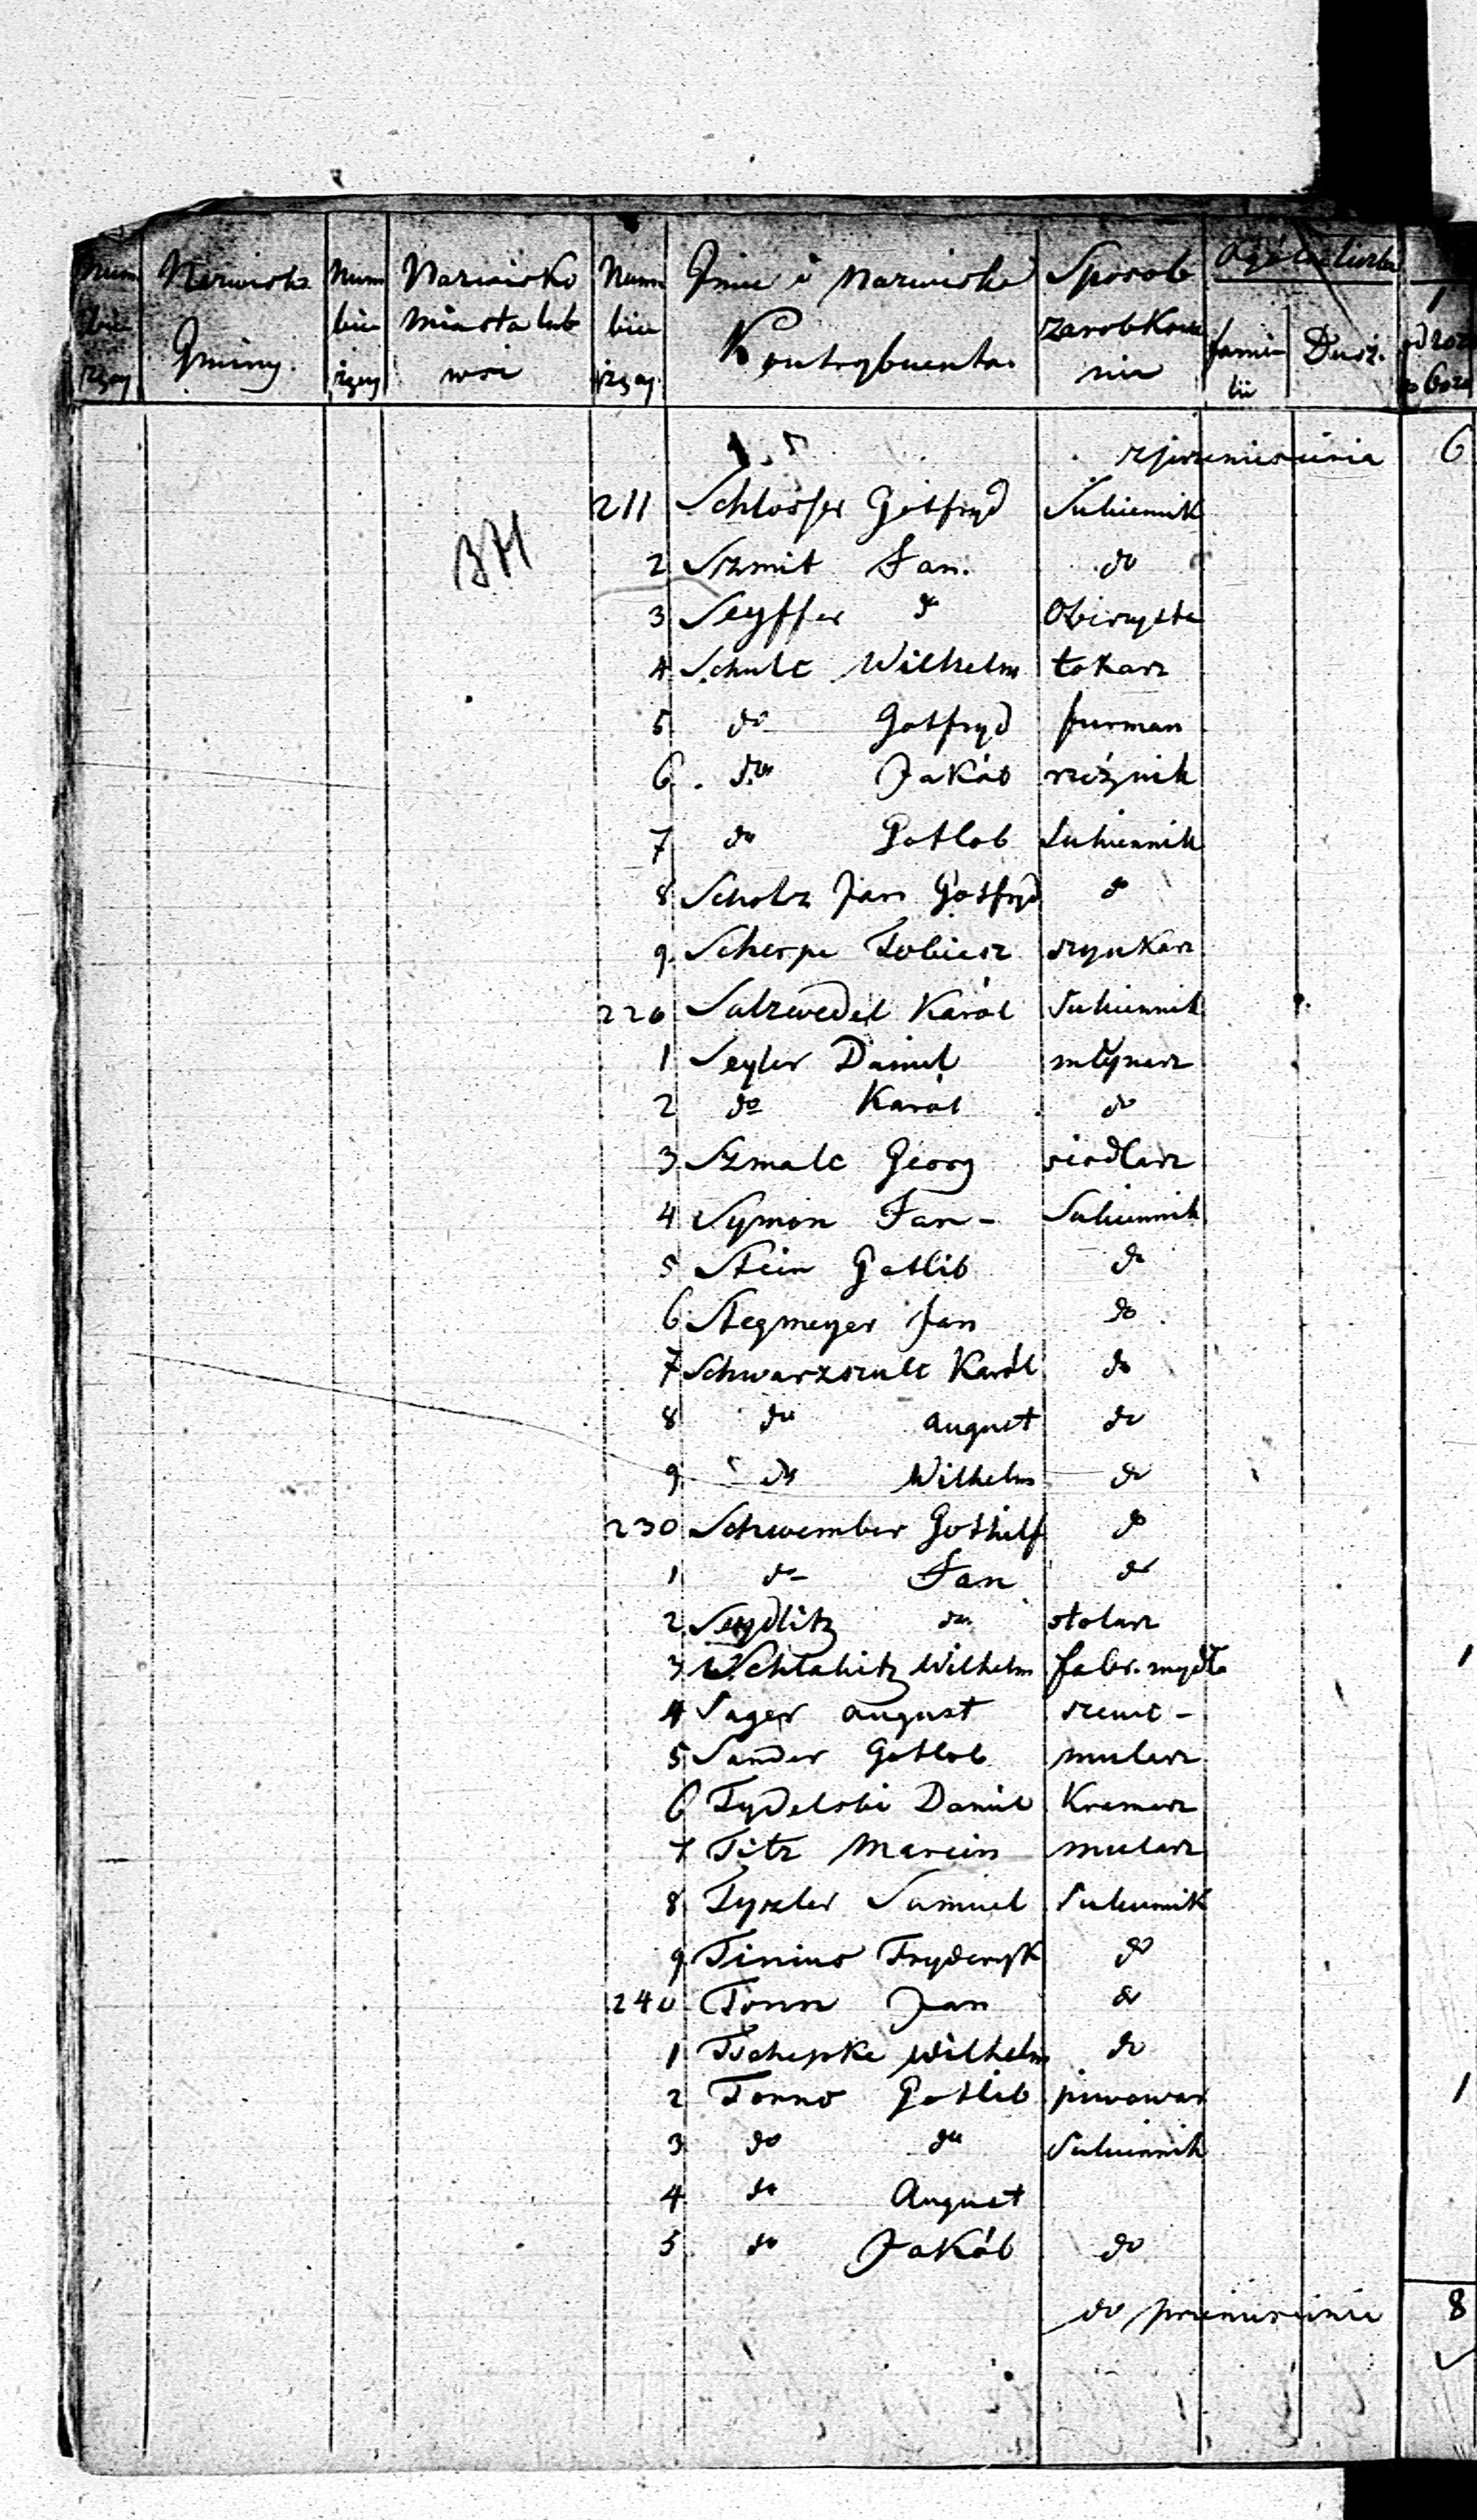 Num bie rzący Nazwisko Gminy. Num bie rzący Nazwisko miasta lub wsi Num bie rzący Imie i Nazwisko Kontrybuenta. Sposob zarobkowa nia Ogólna liczba famie lii Dusz. 1
z przeniesienia 6
211 Schlosser Gotfryd Sukiennik
2 Szmit Jan. do
3 Seyffer do Oberzysta
4 Schulc Wilhelm tokarz
5 do Gotfryd furman
6 do Jakób rzéźnik
7 do Gotlob Sukiennik
8 Scholz Jan Gotfryd do
9 Scherpe Tobiasz szynkarz
220 Salzwedel Karól Sukiennik
1 Seyler Daniel młynarz
2 do Karól do
3 Szmalc Georg siodlarz
4 Symon Jan - Sukiennik
5 Stein Gotlib do
6 Stegmeyer Jan do
7 Schwarzszulc Karól do
8 do august do
9 do Wilhelm do
230 Schwember Gothilf do
1 do Jan do
2 Seydlitz do stolarz
3 Schlabitz Wilhelm fabr. mydła 1
4 Sager august szewc -
5 Sander Gotlob mularz
6 Tydelski Daniel Kramarz
7 Titz Marcin mularz
8 Tyszler Samuel Sukiennik
9 Tinius Fryderyk do
240 Tonn Jan do
1 Tschepke Wilhelm do
2 Tonno Gotlib piwowar 1
3 do do Sukiennik
4 do August
5 do Jakób do
do przeniesienia 8